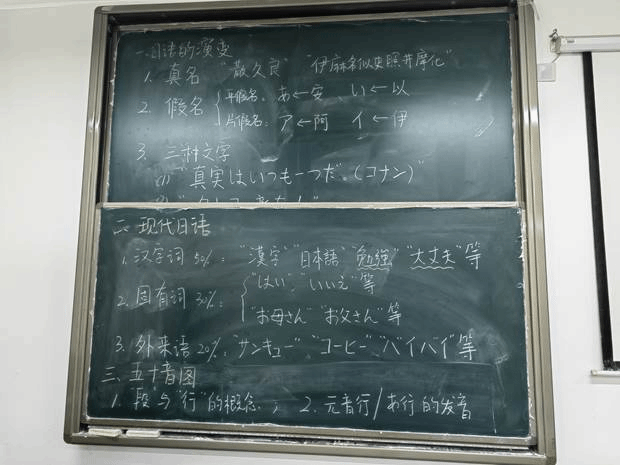 一.日语的演变
1. 真名 "散久良" "伊麻米似史照井摩化"
2. 假名 平假名: あ←安 い←以
片假名: ア←阿 イ←伊
3. 三种文字
(1) "真実はいつも一つだ。(コナン)"
二. 现代日语
1. 汉字词 50%: "漢字" "日本語" "勉強" "大丈夫"等
2. 固有词 30%: "はい" "いいえ"等
"お母さん" "お父さん"等
3. 外来语 20%: "サンキュー"、"コーヒー"、"バイバイ"等
三. 五十音图
1. "段"与"行"的概念; 2. 元音行/あ行的发音